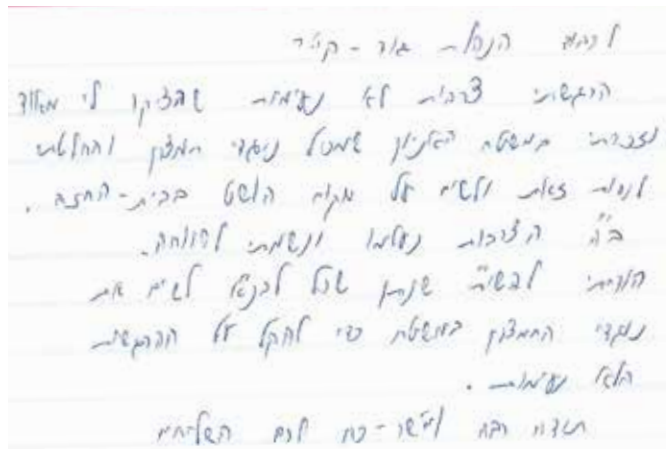 לכבוד הנהלת אור - קיר
הרגשתי צרבות לא נעימות שהציקו לי מאוד
נזכרתי במשחת האניון שמכיל נוגדי חמצון והחלטתי
לנסות זאת ולשים על מקום הושט בבית - החזה.
ב"ה הצרבות נעלמו ונשמתי לרווחה.
הודיתי להשי"ת שנתן שכל לבנ"א לשים את
נוגדי החמצון במשחת כדי להקל על ההרגשות
הלא נעימות.
תודה רבה ויישר - כח לכם השליחים